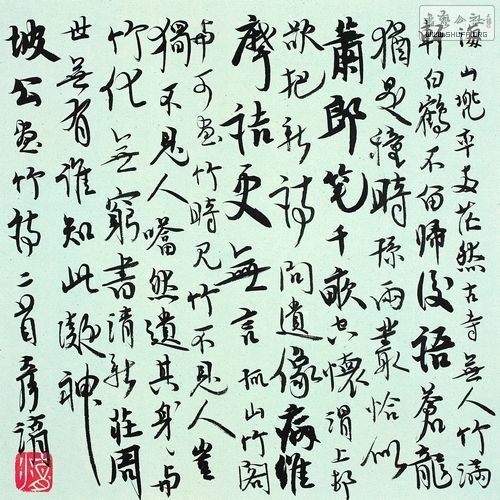 海山兜率兩茫然古寺無人竹滿
軒白鶴不留歸後語蒼龍
猶是種時孫兩叢恰似
蕭郎笔千畝空懷渭上邨
欲把新詩問遺像病維
摩詰更無言孤山竹閣
與可畫竹時見竹不見人豈
獨不見人嗒然遺其身與
竹化無窮書清新莊周
世無有誰知此凝神
坡公畫竹詩二首